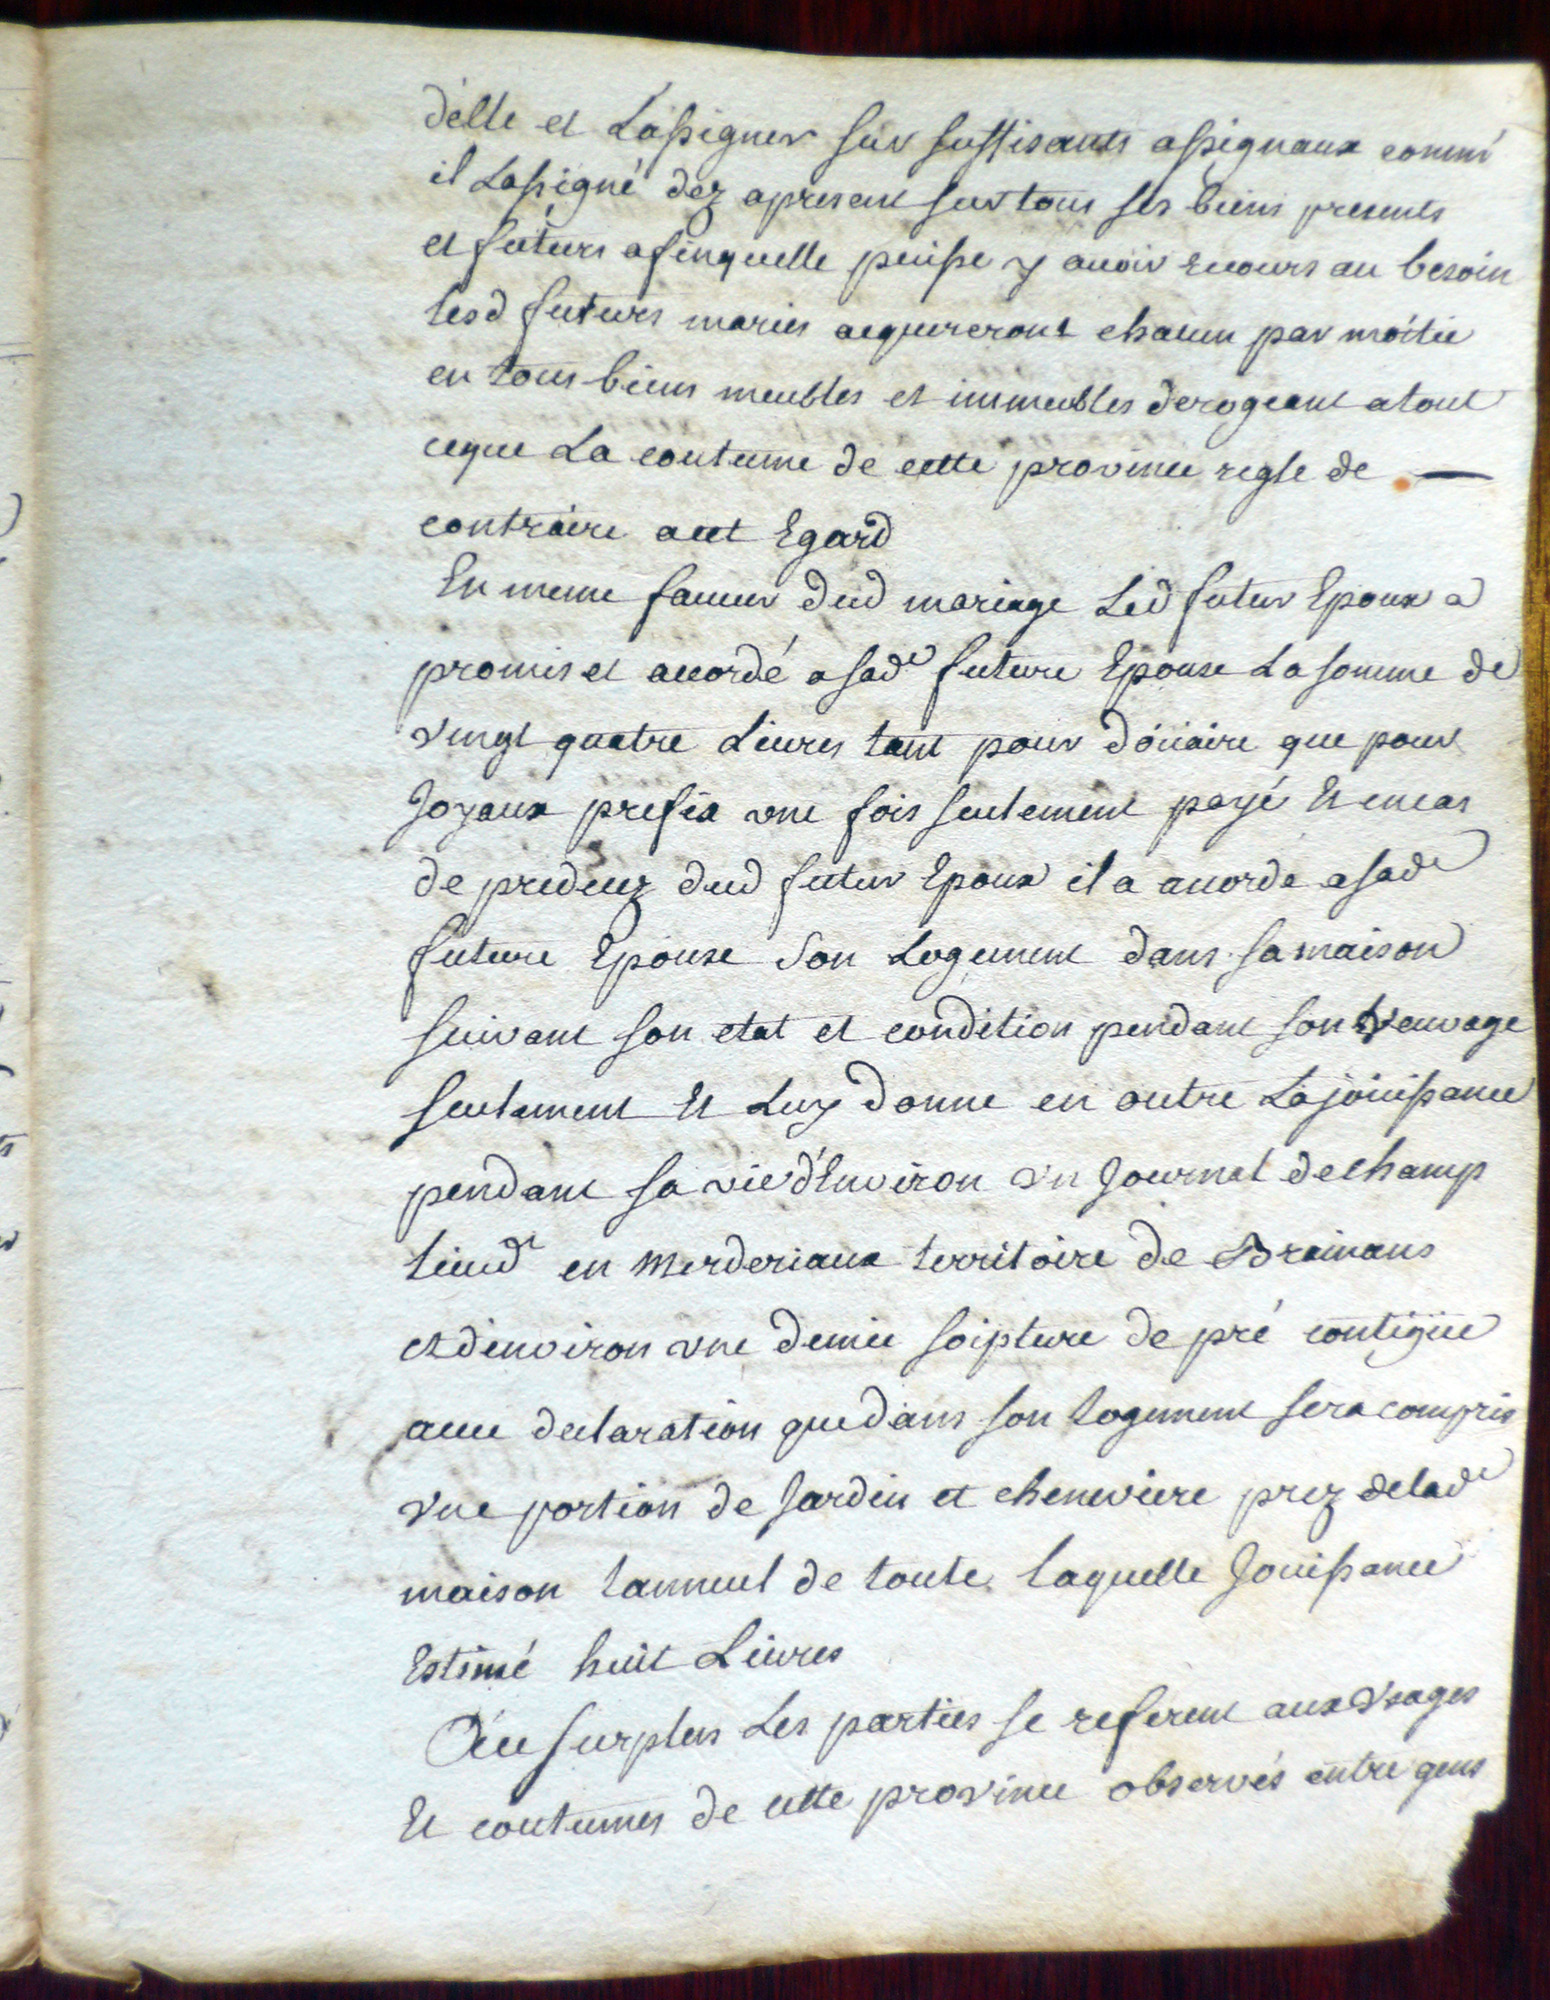 d'elle et L'assigner sur suffisants assignaux comm'
il Lassigné dez apresent sur tous ses biens presents
et futurs afinquelle puisse y avoir recours au besoin
lesd futurs mariés acquereront chacun par moitie
en tous biens meubles et immeubles derogeant atout
ceque La coutume de cette province regle de —
contraire acet Egard
En meme faveur dud mariage Led futur Epoux a
promis et accordé a sad.e future Epouse La somme de
vingt quatre Livres tant pour doüaire que pour
Joyaux prefix une fois seulement payé Et encas
de predecez dud futur Epoux il a accordé a sad.e
future Epouse son Logement dans sa maison
suivant son etat et condition pendant son Veuvage
seulement Et Luy donne en outre La joüissance
pendant sa vie d'Environ un Journal de champ
lieud.t en Merderiaux territoire de Brainans
et d'environ une demie soipture de pré contigüe
avec declaration que dans son logement sera compris
une portion de Jardin et cheneviere prez delad.e
maison lannuel de toute laquelle Jouissance
Estimé huit Livres
Au surplus Les parties se referent aux Usages
Et coutumes de cette province observés entre gens